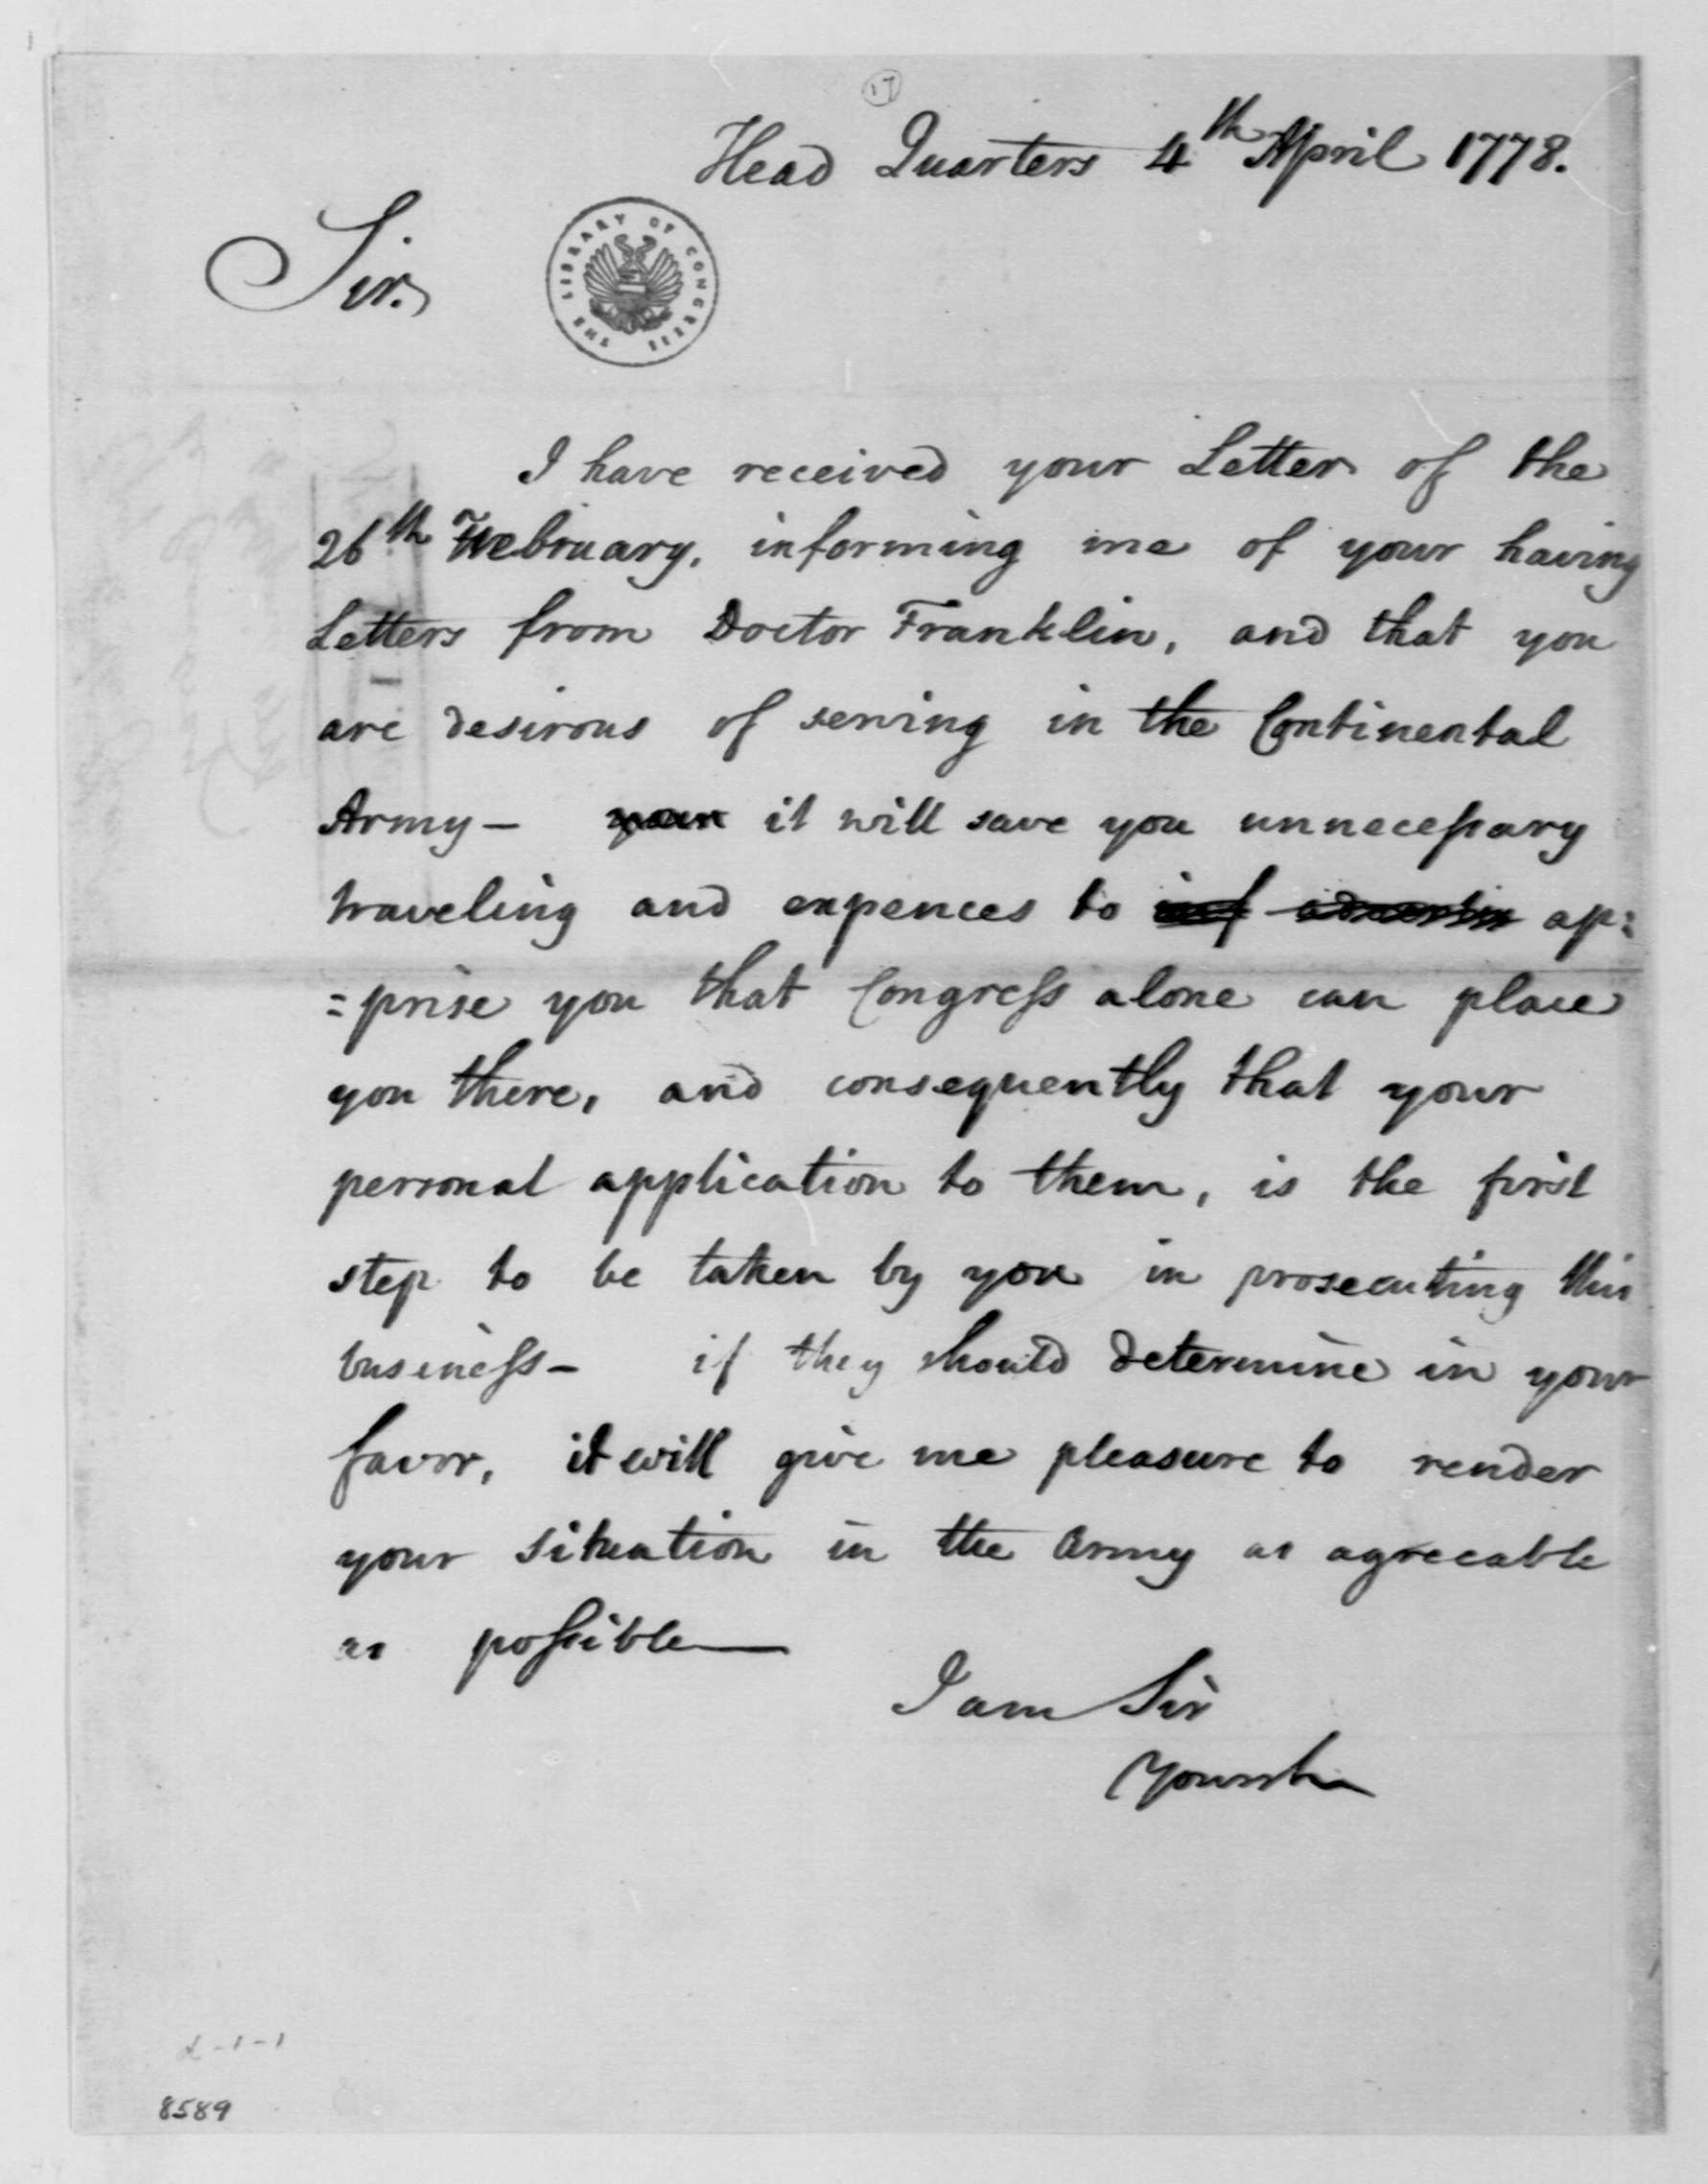 17
Head Quarters 4th April 1778.
Sir.
THE LIBRARY OF CONGRESS
I have received your Letter of the
26th February, informing me of your having
Letters from Doctor Franklin, and that you
are desirous of serving in the Continental
Army— your it will save you unnecessary
traveling and expences to ap:
=prise you that Congress alone can place
you there, and consequently that your
personal application to them, is the first
step to be taken by you in prosecuting this
business— if they should determine in your
favor, it will give me pleasure to render
your situation in the Army as agreeable
as possible—
I am Sir
8589